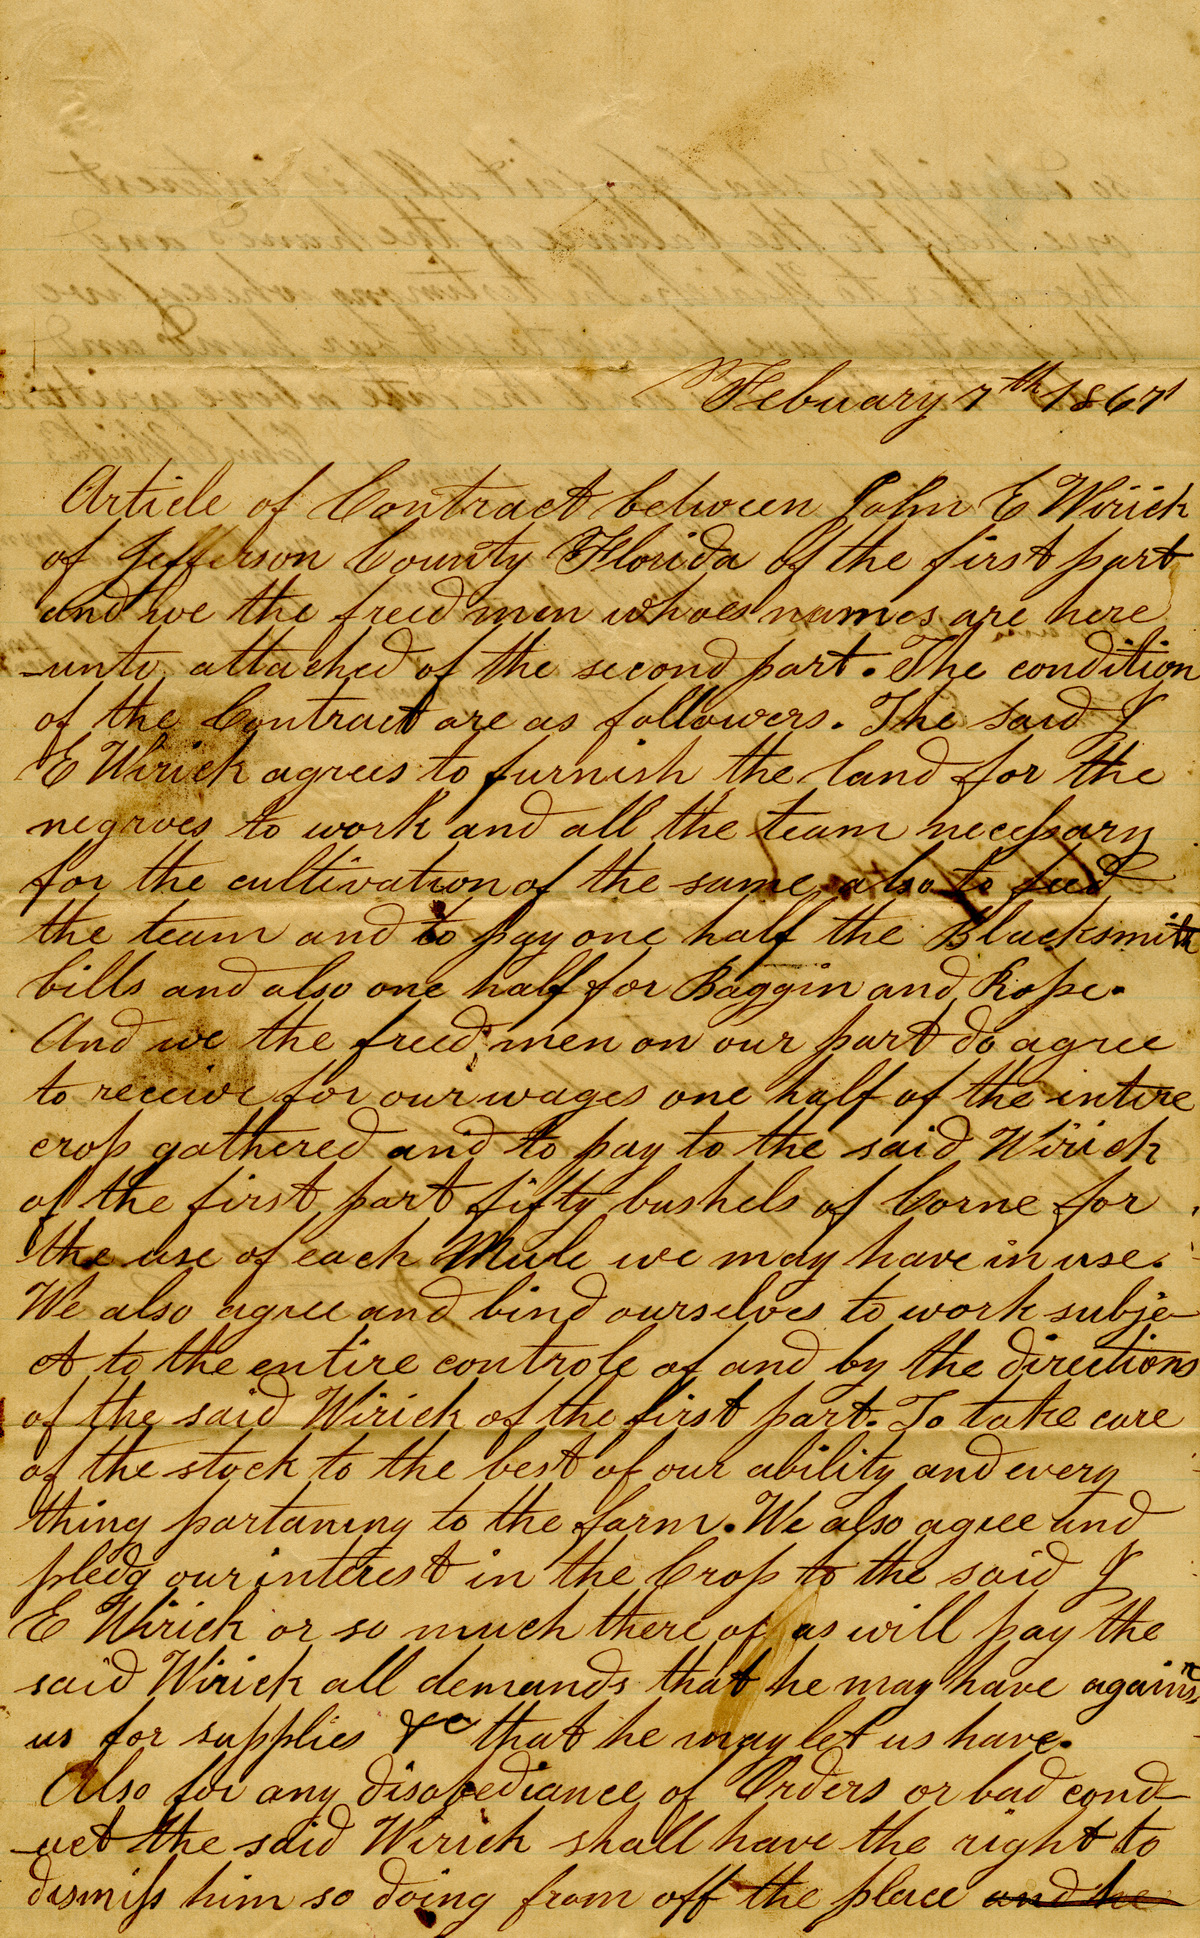 Febuary 7th 1867
Article of Contract between John E Wirick
of Jefferson County Florida of the first part
and we the freed men whoes names are here
unto attached of the second part. The condition
of the Contract are as followers. The said J
E Wirick agrees to furnish the land for the
negroes to work and all the team necessary
for the cultivation of the same also to feed
the team and to pay one half the Blacksmith
bills and also one half for Baggin and Rope.
And we the freed men on our part do agree
to receive for our wages one half of the intire
crop gathered and to pay to the said Wirick
of the first part fifty bushels of Corne for
the use of each Mule we may have in use.
We also agree and bind ourselves to work subje-
ct to the entire controle of and by the directions
of the said Wirick of the first part. To take care
of the stock to the best of our ability and every
thing partaning to the farm. We also agree and
pledg our interest in the Crop to the said J
E Wirick or so much there of as will pay the
said Wirick all demands that he may have against
us for supplies &c that he may let us have.
Also for any disobediance of Orders or bad cond-
-uct the said Wirick shall have the right to
dismiss him so doing from off the place and he